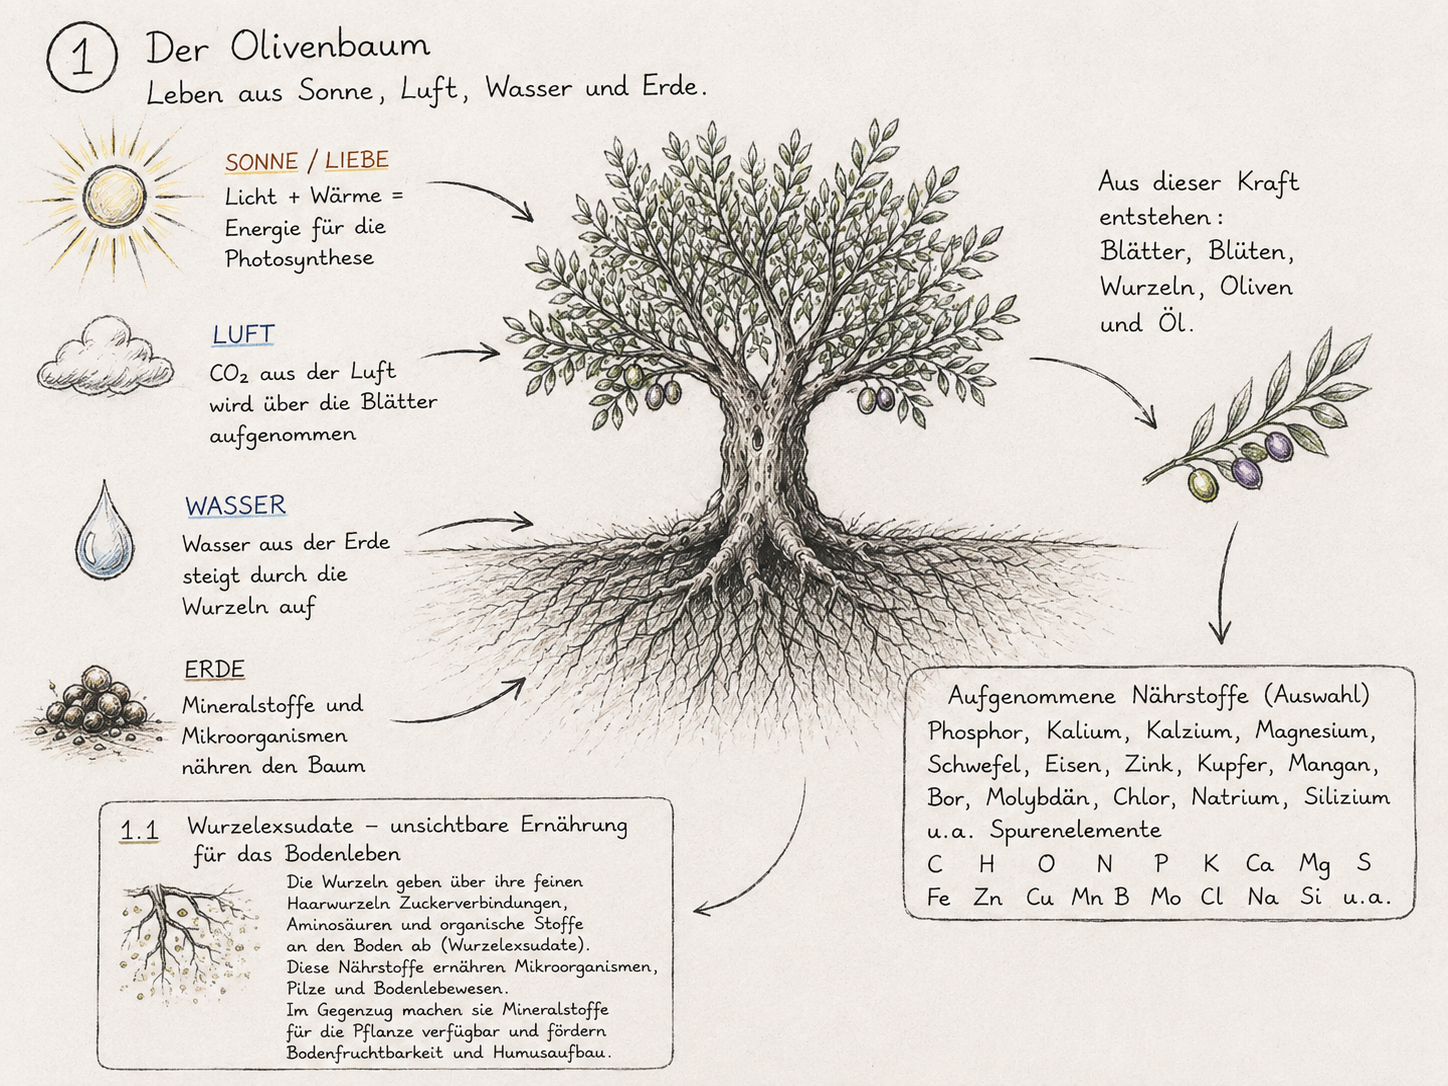 1
Der Olivenbaum
Leben aus Sonne, Luft, Wasser und Erde.
SONNE / LIEBE
Licht + Wärme =
Energie für die
Photosynthese
LUFT
CO₂ aus der Luft
wird über die Blätter
aufgenommen
WASSER
Wasser aus der Erde
steigt durch die
Wurzeln auf
ERDE
Mineralstoffe und
Mikroorganismen
nähren den Baum
Aus dieser Kraft
entstehen:
Blätter, Blüten,
Wurzeln, Oliven
und Öl.
Aufgenommene Nährstoffe (Auswahl)
Phosphor, Kalium, Kalzium, Magnesium,
Schwefel, Eisen, Zink, Kupfer, Mangan,
Bor, Molybdän, Chlor, Natrium, Silizium
u.a. Spurenelemente
C H O N P K Ca Mg S
Fe Zn Cu Mn B Mo Cl Na Si u.a.
1.1 Wurzelexsudate – unsichtbare Ernährung
für das Bodenleben
Die Wurzeln geben über ihre feinen
Haarwurzeln Zuckerverbindungen,
Aminosäuren und organische Stoffe
an den Boden ab (Wurzelexsudate).
Diese Nährstoffe ernähren Mikroorganismen,
Pilze und Bodenlebewesen.
Im Gegenzug machen sie Mineralstoffe
für die Pflanze verfügbar und fördern
Bodenfruchtbarkeit und Humusaufbau.